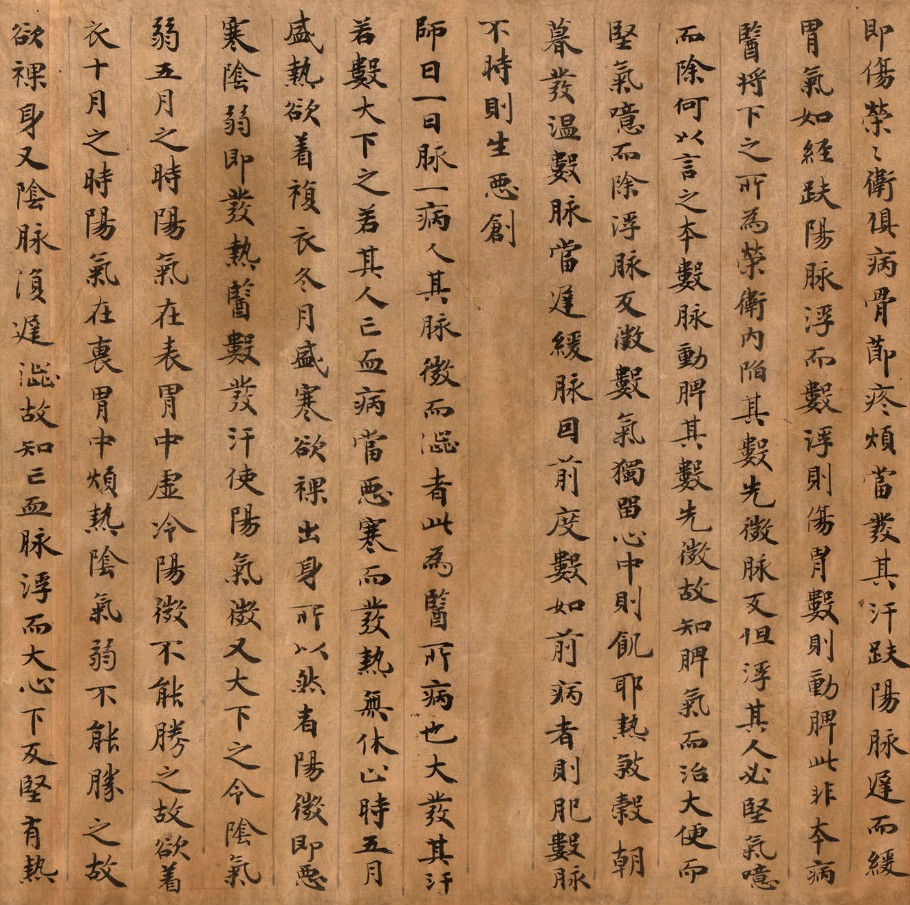 即傷榮〻衛俱病骨節疼煩當發其汗趺陽脉遲而緩
胃氣如經趺陽脉浮而數浮則傷胃數則動脾此非本病
醫將下之所為榮衛內陷其數先微脉反但浮其人必堅氣噫
而除何以言之本數脉動脾其數先微故知脾氣而治大便而
堅氣噫而除浮脉反微數氣獨留心中則飢耶熱敫穀朝
暮發溫數脉當遲緩脉因前度數如前病者則肥數脉
不時則生惡創
師曰一曰脉一病人其脉微而澁者此為醫所病也大發其汗
若數大下之若其人亡血病當惡寒而發熱無休止時五月
盛熱欲着複衣冬月盛寒欲裸出身所以然者陽微即惡
寒陰弱即發熱醫數發汗使陽氣微又大下之令陰氣
弱五月之時陽氣在表胃中虛冷陽微不能勝之故欲着
衣十月之時陽氣在裏胃中煩熱陰氣弱不能勝之故
欲裸身又陰脉復遲澁故知亡血脉浮而大心下反堅有熱